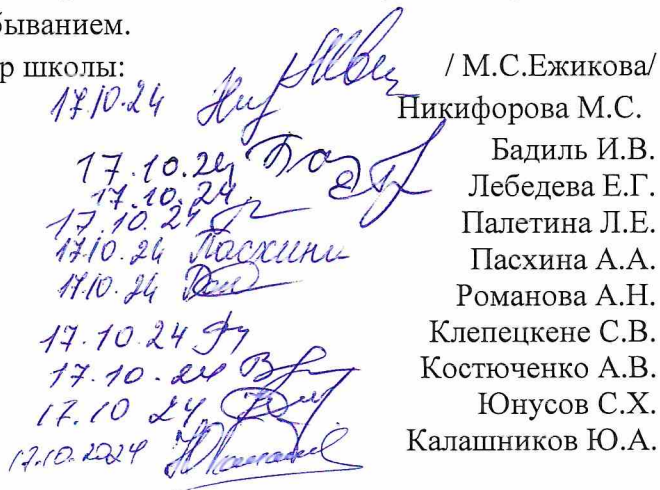 быванием.
р школы: / М.С.Ежикова/
17.10.24 Никифорова М.С.
17.10.24 Бадиль И.В.
17.10.24 Лебедева Е.Г.
17.10.24 Палетина Л.Е.
17.10.24 Пасхина Пасхина А.А.
17.10.24 Романова А.Н.
17.10.24 Клепецкене С.В.
17.10.24 Костюченко А.В.
17.10 24 Юнусов С.Х.
17.10.2024 Калашников Ю.А.